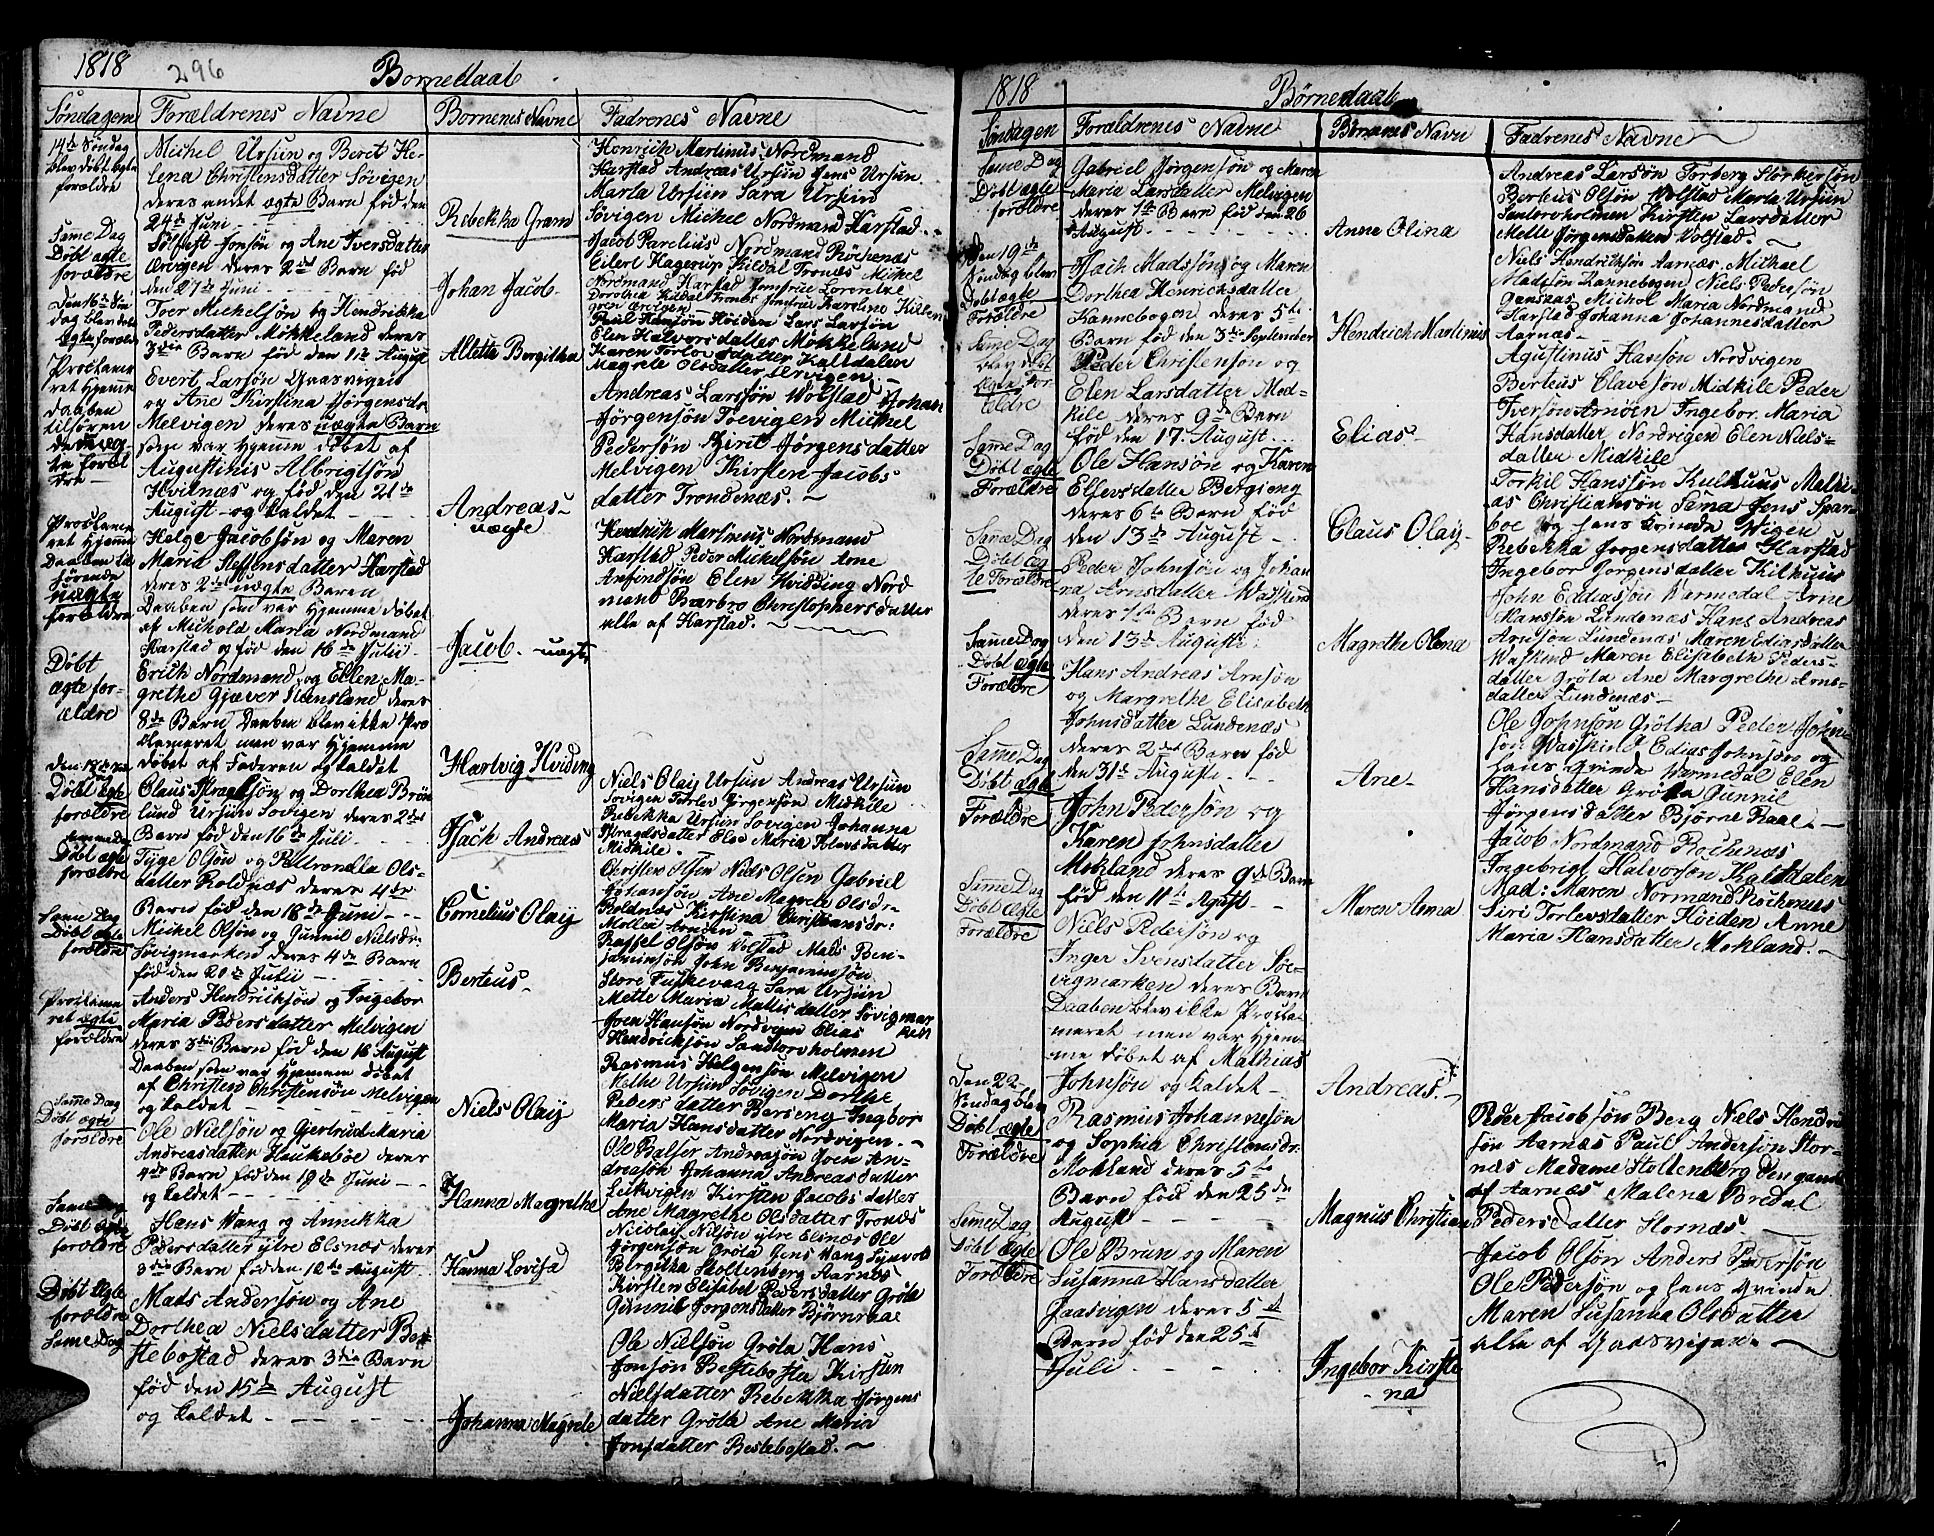 1818 296 Bornedaab
Søndagene Forældrenes Navne Bornenes Navne Fadrenes Navne
14de Søndag
blev døbt ægte
forældre
Michel Ursun og Beret He-
lena Christensdatter Søvigen
deres andet ægte Barn fød den
24de Juni -
Rebekka Gram
Henrich Martinus Nordmand
Harstad Andreas Ursun Jens Ursun
Marta Ursun Sara Ursun
Søvigen Michel Nordmand Harstad
Samme Dag
Døbt ægte
forældre
Jonsøn og Ane Iversdatter
Ervigen deres 2det Barn fød
den 27de Juni
Johan Jacob
Jacob Parelius Nordmand Röchenæs
Eilert Hagerup Kildal Tornæs Michel
Nordmand Harstad Jomfrue Lorentze
Dorthea Kildal Jomfrue Karoline Kildal
den 16de Søn
dag blev døbt
ægte forældre
Toer Michelsøn og Hendrikka
Pedersdatter Møkkeland deres
3die Barn fød den 11te August
Alette Bergitha
Poul Hansøn Høiden Lars Larsøn
Elen Halvorsdatter Møkkeland
Karen Torlovsdatter Kaltdalen
Magrete Olsdatter Ervigen
Proclame
ret Hjemme
daaben
tilføren
de uæg-
te foræl
dre
Evert Larsøn Gaasvigen
og Ane Kirstina Jørgensdr
Melvigen deres uægte Barn
som var hjemme døbet af
Augustinus Albrigtsøn
Hviknæs og fød den 21de
August og kaldet
Andreas
uægte
Andreas Larsøn Volstad Johan
Jørgensøn Toevigen Michel
Pedersøn Birit Jørgensdatter
Melvigen Kirsten Jacobs
datter Trondenæs.
Proclame
ret Hjemme
Daaben til
førende
uægte
forældre
Helge Jacobsøn og Maren
Maria Steffensdatter Harstad
deres 2det uægte Baren
Daaben som var Hjemme døbet
af Michold Maria Nordmand
Harstad og fød den 16de Julii
Jacob uægte
Hendrich Martinus Nordmand
Harstad Peder Mickelsøn Arne
Anfindsøn Elen Hvidding Nord
mand Barbro Christophersdatter
alle af Harstad.
Døbt
ægte for-
ældre
Erich Nordmand og Ellen Ma-
grethe Gjæver Hansland deres
8de Barn Daaben blev ikke Pro
clameret men var Hjemme
døbet af Faderen og kaldet
Hartvig Hviding
Døbt ægte
forældre
Claus og Dorthea Brön
lund Ursun Søvigen deres 2det
Barn fød den 16de Juli
Isach Andreas
Niels Olay Ursun Andreas Ursun
Søvigen Torlev Jørgensøn Midkile
Rebekka Ursun Søvigen Johanna
datter Else Maria Klavsdatter
Midkile
Samme Dag
Døbt ægte
forældre
Tyge Olsøn og Pettronella Ols-
datter Roldnæs deres 4de
Barn fød den 18de Juni
Cornelius Olay
Christen Olsen Niels Olsen Gabriel
Johansøn Ane Magreta Olsdr
Roldnæs Kirstina Christiansdr:
Samme Dag
Døbt ægte
forældre
Michel Olsøn og Gunnil Nielsdr:
Søvigmarken deres 4de Barn
fød den 20de Julii
Berteus
Raffel Olsøn Volstad Mads Ben-
jaminsøn John Benjaminsøn
Store Fuskevaag Sara Ursun
Mette Maria Mattisdatter Søvigmar
ken
Proclame
ret ægte
forældre
Anders Hendricksøn og Ingebor
Maria Pedersdatter Melvigen
deres 3die Barn fød den 16 August
Daaben som var Hjemmen døbet
af Christen Christensøn Melvigen
og kaldet
Niels Olay
Joen Hansøn Nordvigen Elias
Hendricksøn Sandtorholmen
Rasmus Helgensøn Melvigen
Methe Ursun Søvigen Dorthe
Pedersdatter Berseng Ingbor
Maria Hansdatter Nordvigen.
Samme Dag
Døbt ægte
forældre
Ole Nielsøn og Gjertrud Maria
Andreasdatter Haukeboe deres
4de Barn fød den 19de Juni
og kaldet
Hanna Margrethe
Ole Balser Andreasøn Joen An-
dreasøn Johanna Andreasdatter
Leikvigen Kirsten Jacobsdatter
Ane Magrethe Olsdatter Tronæs
Samme Dag
Døbt ægte
forældre
Hans Vang og Annikka
Pedersdatter ytre Elsnæs deres
3die Barn fød den 12te August
Hanna Lovisa
Nicolay Nilsøn ytre Elsnæs Ole
Jørgensøn Gröta Jens Vang
Birgitha Stoltenberg Aarnæs
Kirsten Elisabet Pedersdatter Gröta
Gunnil Jørgensdatter Björnraae
Døbt ægte
forældre
Same Dag
Mads Andersøn og Ane
Dorthea Nielsdatter Be-
stebostad deres 3die Barn
fød den 15de August
og kaldet
Johanna Magrete
Ole Nielsøn Gröta Hans
Jonsøn Bestebosta Kirsten
Nielsdatter Rebekka Jörgens
datter Gröta Ane Maria
Jonsdatter Bestebostad.
1818 Børnedaab
Søndagen Forældrenes Navne Børnenes Navn Fadrenes Navne
Same Dag
Døbt ægte
forældre
Gabriel Jørgensøn og Maren
Maria Larsdatter Melvigen
deres 1te Barn fød den 26
August
Anne Olina
Andreas Larsøn Torberg Storkersøn
Berteus Olsøn Volstad Marta Ursun
Santoreholmen Kirsten Larsdatter
Mette Jørgensdatter Volstad.
Den 19de
Søndag blev
Døbt ægte
Forældre
Isach Madsøn og Maren
Dorthea Henrichsdatter
Kannebogen deres 5te
Barn fød den 3die September
Hendrich Martinus
Niels Hendriksøn Aarnæs Michael
Madsøn Kannebogen Niels Pedersøn
Ganskas Michol Maria Nordmand
Harstad Johanna Johannesdatter
Aarnæs
Same Dag
blev døbt
ægte For-
ældre
Peder Christensøn og
Elen Larsdatter Med-
kile deres 9de Barn
fød den 17. August
Elias
Agustinus Hansøn Nordvigen
Berteus Clavesøn Midkile Peder
Iversøn Arnöen Ingebor Maria
Hansdatter Nordvigen Elen Niels-
datter Midkile
Same Dag
Døbt ægte
Forældre
Ole Hansøn og Karen
Elfevsdatter Bergieng
deres 6te Barn fød
den 13de August
Claus Olay
Torkil Hansøn Kulhuus Mathi-
as Christiansøn Sama Jens Spar
boe og hans kvinde Vigen
Rebekka Jørgensdatter Harstad
Ingebor Jørgensdatter Kilhuus
Same Dag
Døbt æg
te Forældre
Peder Johnsøn og Johan
na Arnsdatter Waskind
deres 1te Barn fød
den 13de Augusti
Magrethe Olena
John Ediassøn Varmedal Arne
Hansøn Lundenæs Hans Andreas
Arnsøn Lundenæs Maren Ediasdatter
Waskind Maren Elisabeth Peders-
datter Gröta Ane Margrethe Arns-
datter Lundenæs
Same Dag
Døbt ægte
Forældre
Hans Andreas Arnsøn
og Margrethe Elisabeth
Johnsdatter Lundenæs
deres 2det Barn fød
den 31te Augusti
Ane
Ole Johnsøn Grötha Peder John-
søn Waskind Edias Johnsøn og
hans Qvinde Varmedal Elen
Hansdatter Gröta Gunnil
Jørgensdatter Bjørne Raae
Same Dag
Døbt ægte
Forældre
John Pedersøn og
Karen Johnsdatter
Mokland deres 9de Barn
fød den 11te Agust
Maren Anna
Jacob Nordmand Rochenæs
Ingebrigt Halvorsøn Kaldtalen
Mad: Maren Normand Rochenæs
Siri Torlevsdatter Høiden Anne
Maria Hansdatter Mokland.
Same Dag
Døbt ægte
Forældre
Niels Pedersøn og
Inger Svensdatter Sø-
vigmarken deres Barn
Daaben blev ikke Procla-
meret men var Hjem-
me døbet af Mathias
Johnsøn og kaldet
Andreas.
Den 22
Søndag blev
Døbt ægte
Forældre
Rasmus Johannesøn
og Sophia Christensdr
Mokland deres 5te
Barn fød den 25de
August
Magnus Christian
Peder Jacobsøn Berg Niels Hendrik
søn Aarnæs Paul Andersøn Stor-
næs Madame Stoltenberg den gamle
af Aarnæs Malena Bredal
Pedersdatter Stornæs
Same Dag
Døbt ægte
Forældre
Ole Brun og Maren
Susanna Hansdatter
Gaasvigen deres 5te
Barn fød den 25de
Juli
Ingebor Kirste
na
Jacob Olsøn Anders Persøn
Ole Pedersøn og hans Qvinde
Maren Susanna Olsdatter
alle af Gaasvigen